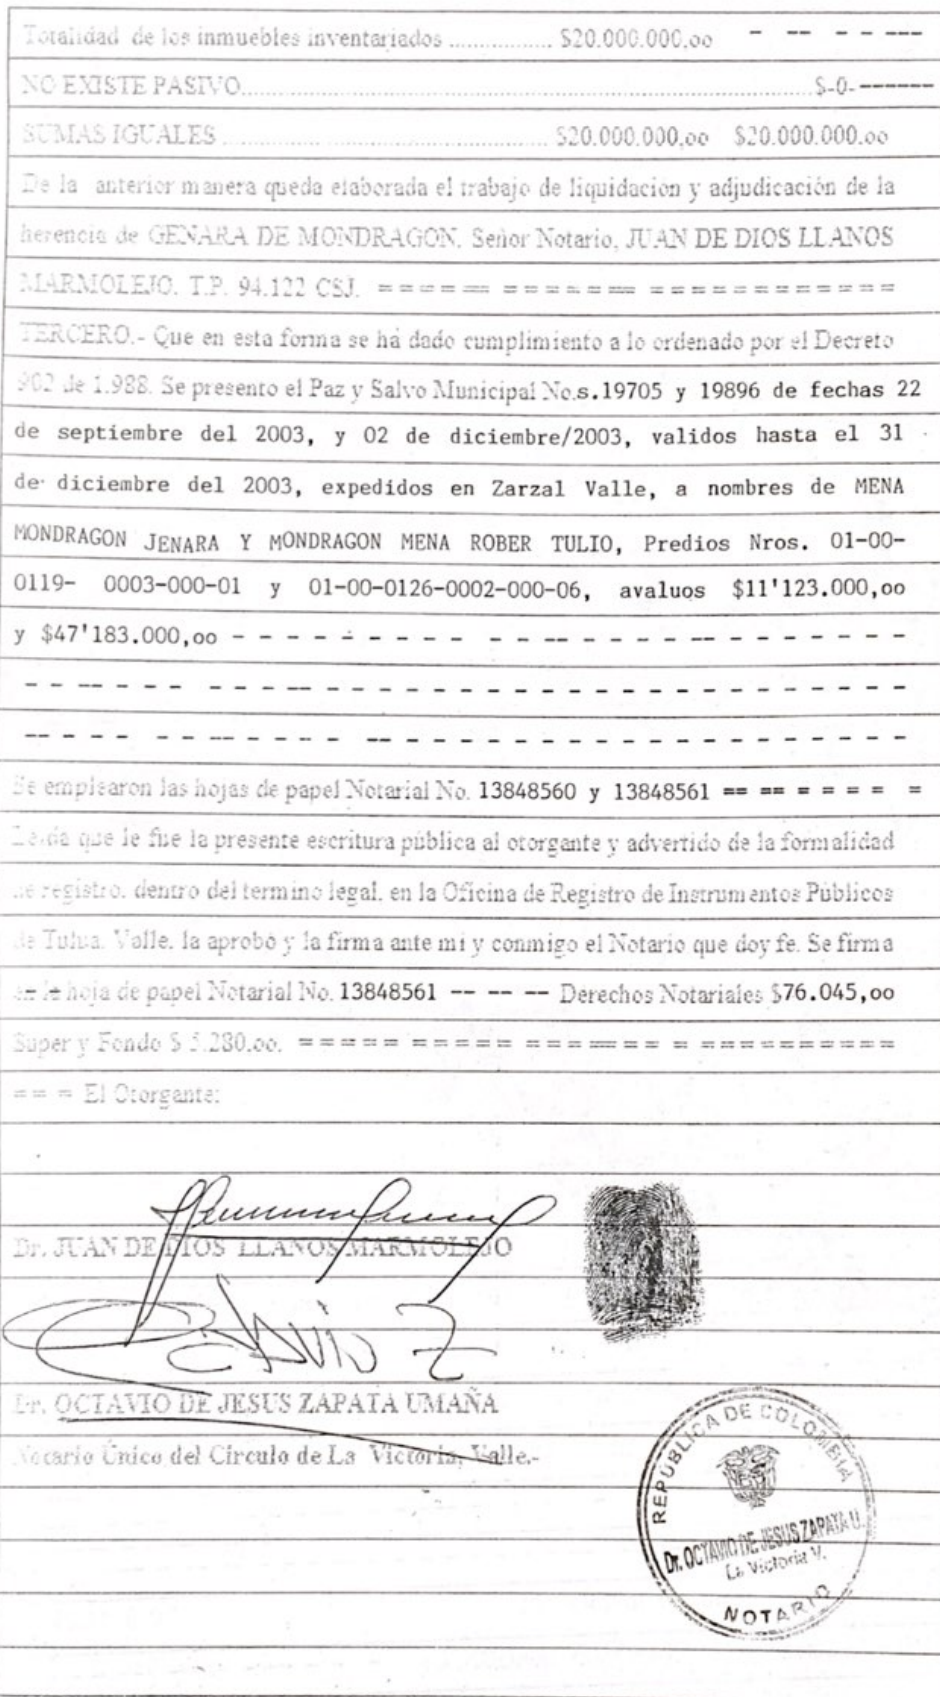 Totalidad de los inmuebles inventariados .................. $20.000.000,oo - -- - - ---
NO EXISTE PASIVO.................................................................................... $-0-------
SUMAS IGUALES ................................................ $20.000.000,oo $20.000.000.oo
De la anterior manera queda elaborada el trabajo de liquidación y adjudicación de la
herencia de GENARA DE MONDRAGON. Señor Notario, JUAN DE DIOS LLANOS
MARMOLEJO. T.P. 94.122 CSJ. = = = = == = = = = = == = = = = = = = = = = = =
TERCERO.- Que en esta forma se ha dado cumplimiento a lo ordenado por el Decreto
902 de 1.988. Se presento el Paz y Salvo Municipal No.s.19705 y 19896 de fechas 22
de septiembre del 2003, y 02 de diciembre/2003, validos hasta el 31
de diciembre del 2003, expedidos en Zarzal Valle, a nombres de MENA
MONDRAGON JENARA Y MONDRAGON MENA ROBER TULIO, Predios Nros. 01-00-
0119- 0003-000-01 y 01-00-0126-0002-000-06, avaluos $11'123.000,oo
y $47'183.000,oo - - - - - - - - - - - -- - - - - -- - - - - - - -
- - -- - - - - - - - -- -- - - - - - - - - - - - - - - - - - -
-- - - - - - -- - - - - -- - - - - - - - - - - - - - - - - - -
Se emplearon las hojas de papel Notarial No. 13848560 y 13848561 == == = = = = = =
Leida que le fue la presente escritura pública al otorgante y advertido de la formalidad
de registro, dentro del termino legal, en la Oficina de Registro de Instrumentos Públicos
de Tulua. Valle. la aprobó y la firma ante mi y conmigo el Notario que doy fe. Se firma
en la hoja de papel Notarial No. 13848561 -- -- -- Derechos Notariales $76.045,oo
Super y Fondo $ 5.280.oo. = = = = = = = = = = = = = == == = = = = = = = = = = =
== = El Otorgante:
Dr. JUAN DE DIOS LLANOS MARMOLEJO
Dr. OCTAVIO DE JESUS ZAPATA UMAÑA
Notario Único del Círculo de La Victoria, Valle.-
REPÚBLICA DE COLOMBIA
Dr. OCTAVIO DE JESUS ZAPATA U.
La Victoria V.
NOTARIO